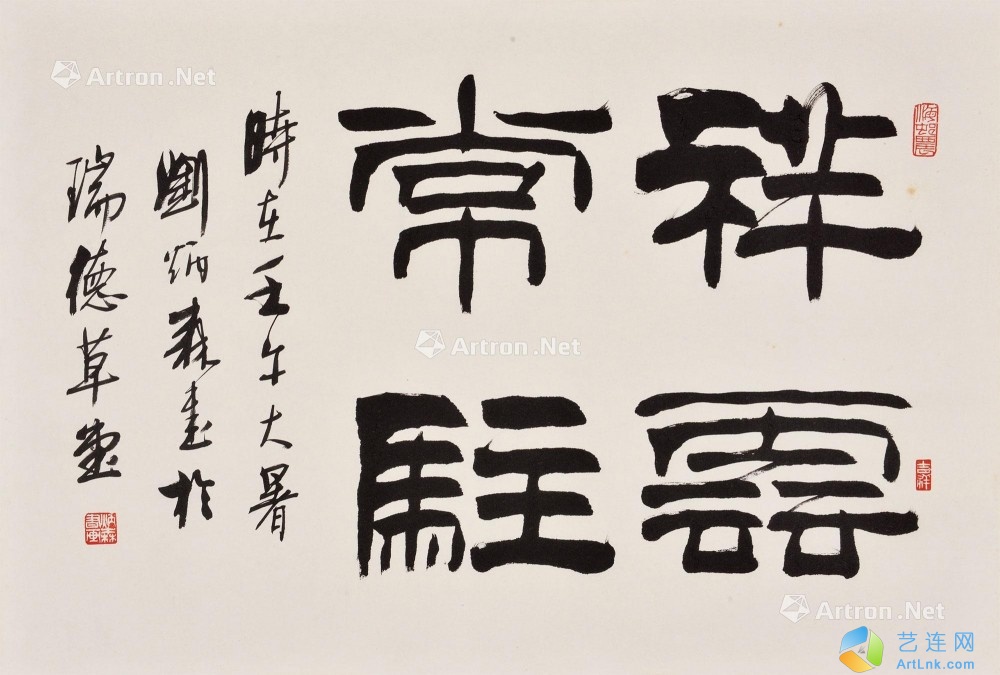 祥雲
常駐
時在壬午大暑
劉炳森書於
瑞德草堂
吉祥
炳森書画
Artron.Net
Artron.Net
Artron.Net
艺连网
ArtLnk.com